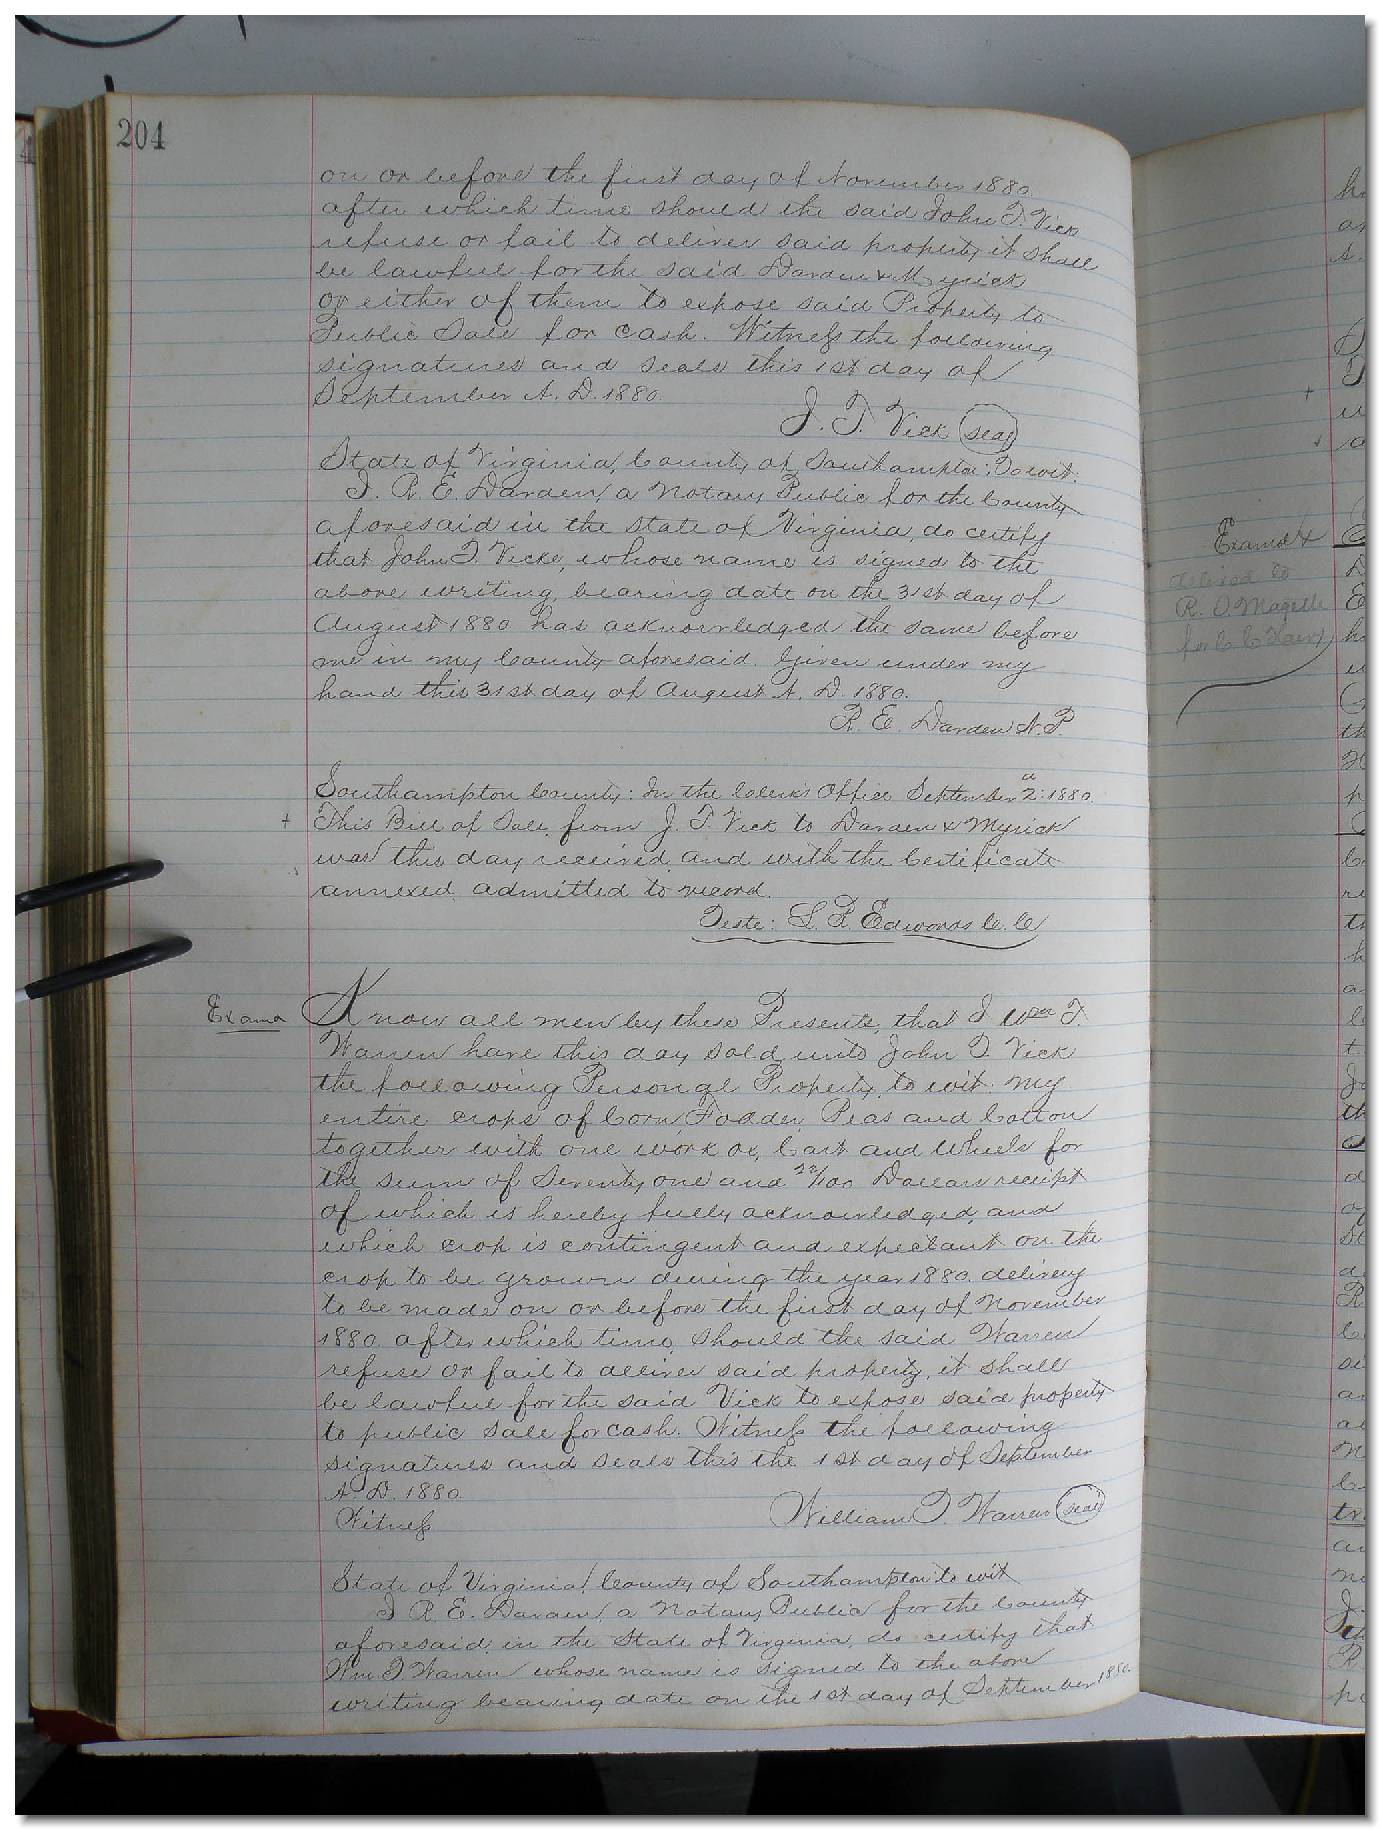 204
on or before the first day of November 1880
after which time should the said John T. Vick
refuse or fail to deliver said property it shall
be lawful for the said Darden & Myrick
or either of them to expose said Property to
Public Sale for cash. Witness the following
signatures and seals this 1st day of
September A. D. 1880.
J. T. Vick (seal)
State of Virginia, County of Southampton: To wit:
I. R. E. Darden, a Notary Public for the County
aforesaid in the State of Virginia, do certify
that John T. Vicke, whose name is signed to the
above writing, bearing date on the 31st day of
August 1880 has acknowledged the same before
me in my County aforesaid. Given under my
hand this 31st day of August A. D. 1880.
R. E. Darden N. P.
Southampton County: In the Clerks Office September 2: 1880.
This Bill of Sale, from J. T. Vick to Darden & Myrick
was this day received, and with the Certificate
annexed, admitted to record.
Teste: L. R. Edwards C. C.
Examd
Know all men by these Presents, that I Wm T.
Warren have this day sold unto John T. Vick
the following Personal Property, to wit: My
entire crops of Corn, Fodder, Peas and Cotton
together with one work ox, Cart and Wheels for
the sum of Seventy one and /100 Dollars receipt
of which is hereby fully acknowledged, and
which crop is contingent and expectant on the
crop to be grown during the year 1880. delivery
to be made on or before the first day of November
1880. after which time, should the said Warren
refuse or fail to deliver said property, it shall
be lawful for the said Vick to expose said property
to public sale for cash. Witness the following
signatures and seals this the 1st day of September
A. D. 1880.
Witness
William T. Warren (seal)
State of Virginia, County of Southampton to wit
I R. E. Darden, a Notary Public for the County
aforesaid, in the State of Virginia, do certify that
Wm T Warren whose name is signed to the above
writing bearing date on the 1st day of September 1880.
Examd &
delived to
R. O. Magette
for C. C.